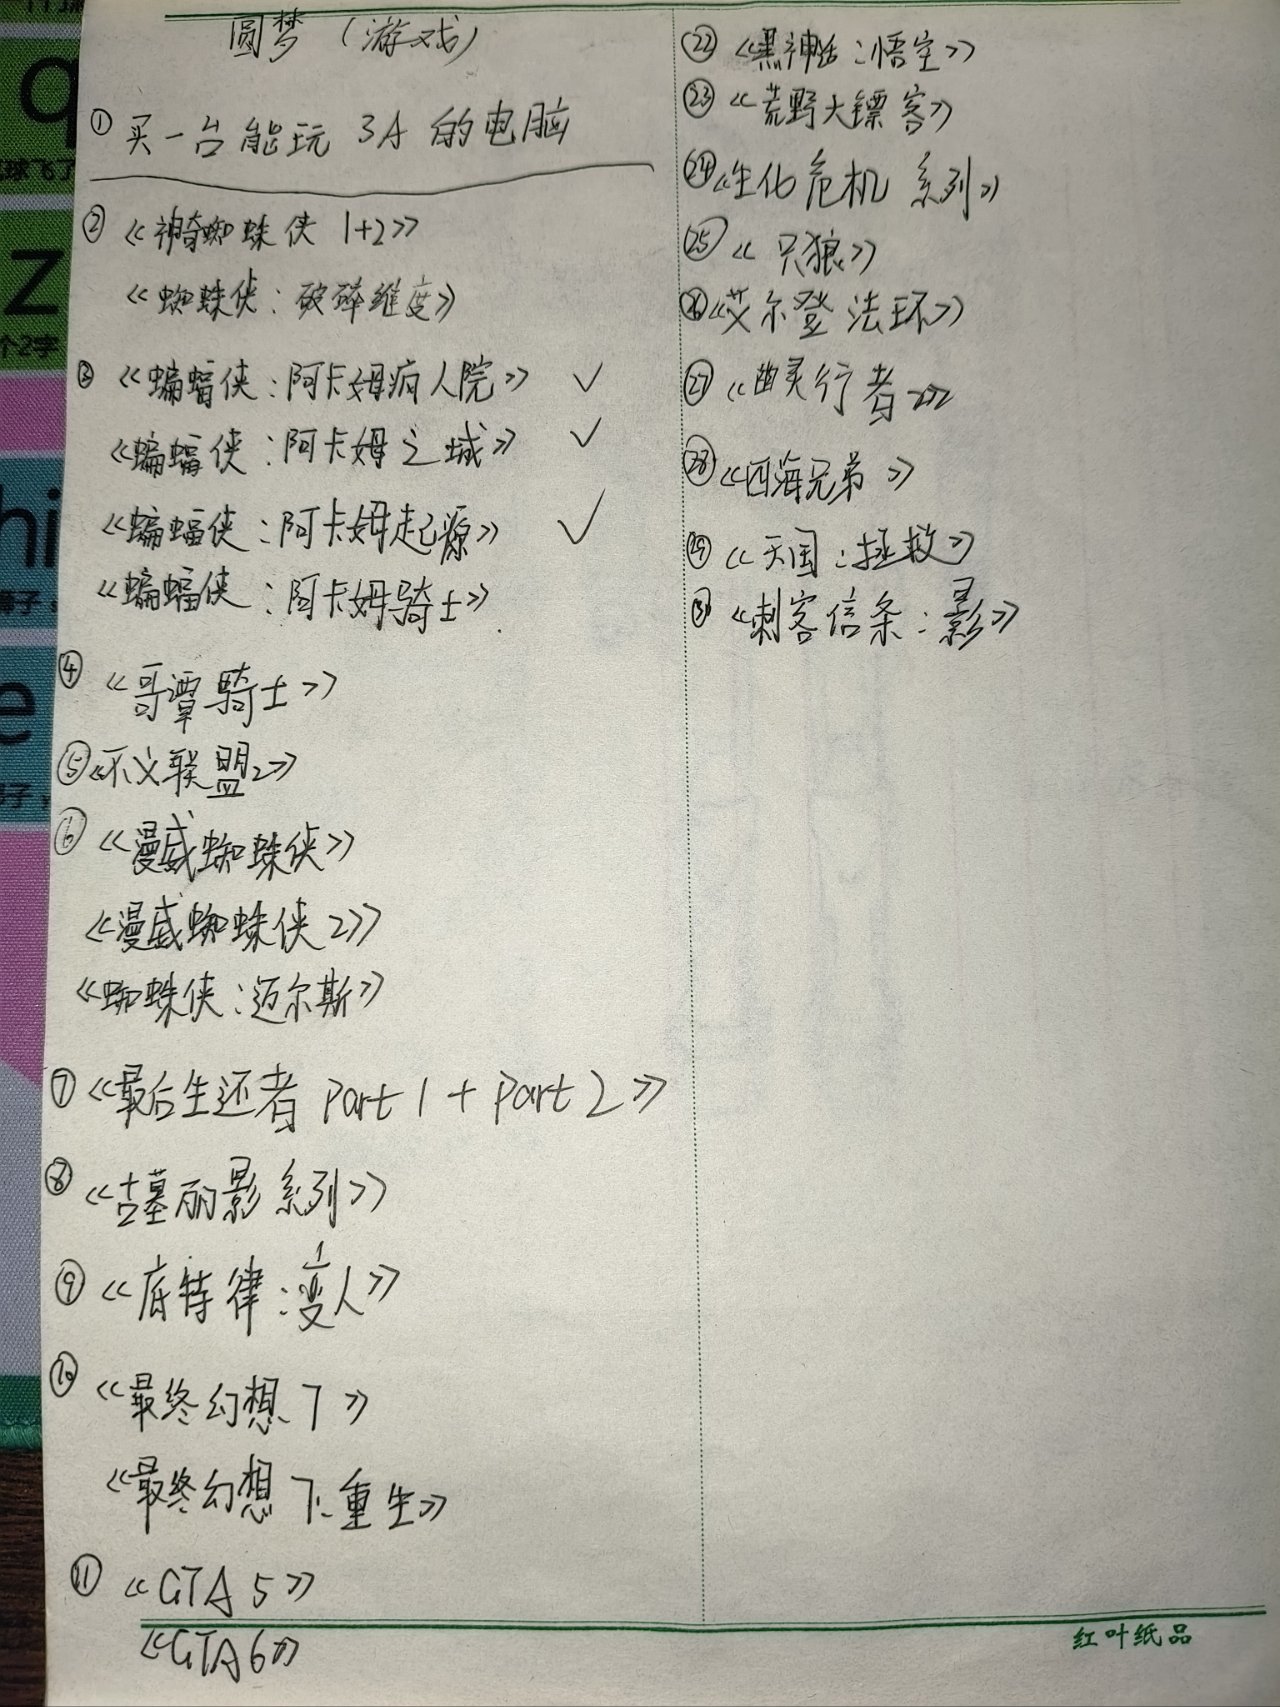 圆梦（游戏）
① 买一台能玩 3A 的电脑
② 《神奇蜘蛛侠 1+2》
《蜘蛛侠：破碎维度》
③ 《蝙蝠侠：阿卡姆疯人院》 ✓
《蝙蝠侠：阿卡姆之城》 ✓
《蝙蝠侠：阿卡姆起源》 ✓
《蝙蝠侠：阿卡姆骑士》
④ 《哥谭骑士》
⑤《不义联盟2》
⑥ 《漫威蜘蛛侠》
《漫威蜘蛛侠2》
《蜘蛛侠：迈尔斯》
⑦ 《最后生还者 Part 1 + Part 2》
⑧ 《古墓丽影系列》
⑨ 《底特律：变人》
⑩ 《最终幻想7》
《最终幻想7：重生》
⑪ 《GTA 5》
《GTA6》
㉒ 《黑神话：悟空》
㉓ 《荒野大镖客》
㉔《生化危机 系列》
㉕ 《只狼》
㉖《艾尔登法环》
㉗ 《幽灵行者2》
㉘《四海兄弟》
㉙ 《天国：拯救》
㉚ 《刺客信条：影》
红叶纸品
q
球飞了
z
个2字
hi
子，
e
子，